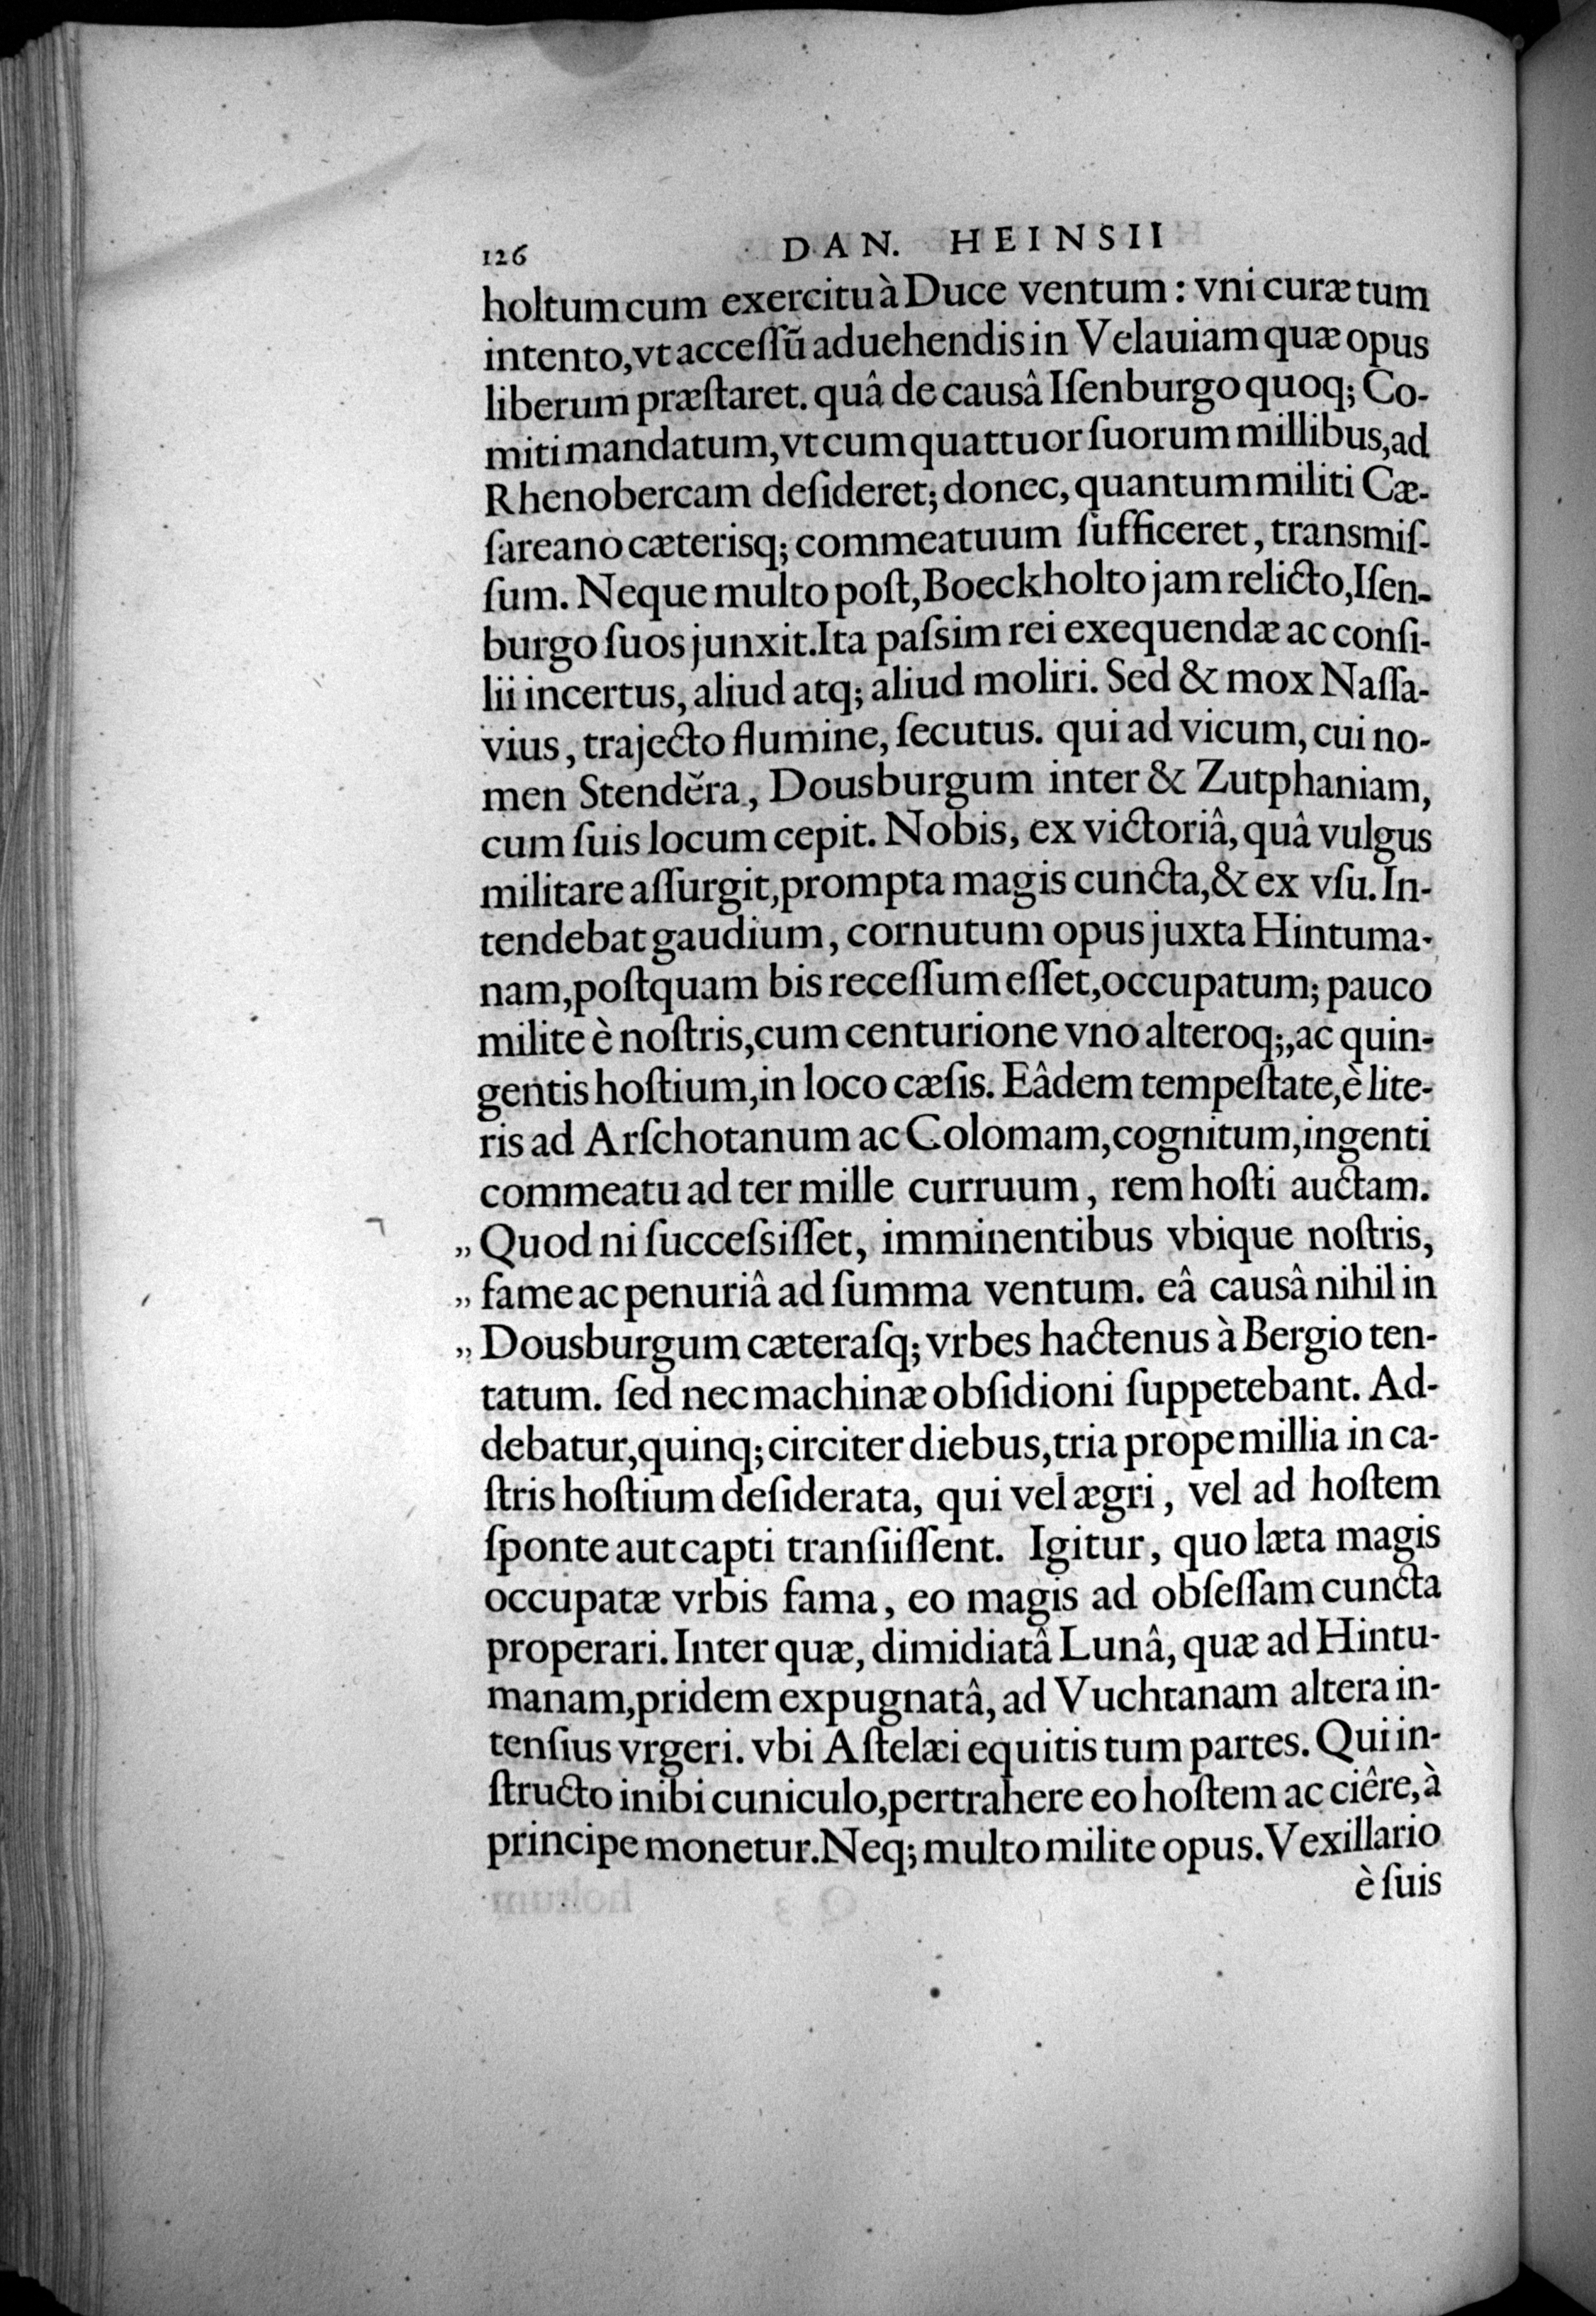 126 DAN. HEINSII
holtum cum exercitu à Duce ventum: vni curæ tum
intento, vt accessũ aduehendis in Velauiam quæ opus
liberum præſtaret. quâ de causâ Iſenburgo quoq; Co-
miti mandatum, vt cum quattuor ſuorum millibus, ad
Rhenobercam deſideret; donec, quantum militi Cæ-
ſareano cæterisq; commeatuum ſufficeret, transmiſ-
ſum. Neque multo poſt, Boeckholto jam relicto, Iſen-
burgo ſuos junxit. Ita paſsim rei exequendæ ac conſi-
lii incertus, aliud atq; aliud moliri. Sed & mox Naſſa-
vius, trajecto flumine, ſecutus. qui ad vicum, cui no-
men Stendĕra, Dousburgum inter & Zutphaniam,
cum ſuis locum cepit. Nobis, ex victoriâ, quâ vulgus
militare aſſurgit, prompta magis cuncta, & ex vſu. In-
tendebat gaudium, cornutum opus juxta Hintuma-
nam, poſtquam bis receſſum eſſet, occupatum; pauco
milite è noſtris, cum centurione vno alteroq;, ac quin-
gentis hoſtium, in loco cæſis. Eâdem tempeſtate, è lite-
ris ad Arſchotanum ac Colomam, cognitum, ingenti
commeatu ad ter mille curruum, rem hoſti auctam.
„ Quod ni ſucceſsiſſet, imminentibus vbique noſtris,
„ fame ac penuriâ ad ſumma ventum. eâ causâ nihil in
„ Dousburgum cæteraſq; vrbes hactenus à Bergio ten-
tatum. ſed nec machinæ obſidioni ſuppetebant. Ad-
debatur, quinq; circiter diebus, tria prope millia in ca-
ſtris hoſtium deſiderata, qui vel ægri, vel ad hoſtem
ſponte aut capti tranſiiſſent. Igitur, quo læta magis
occupatæ vrbis fama, eo magis ad obſeſſam cuncta
properari. Inter quæ, dimidiatâ Lunâ, quæ ad Hintu-
manam, pridem expugnatâ, ad Vuchtanam altera in-
tenſius vrgeri. vbi Aſtelæi equitis tum partes. Qui in-
ſtructo inibi cuniculo, pertrahere eo hoſtem ac ciêre, à
principe monetur. Neq; multo milite opus. Vexillario
è ſuis